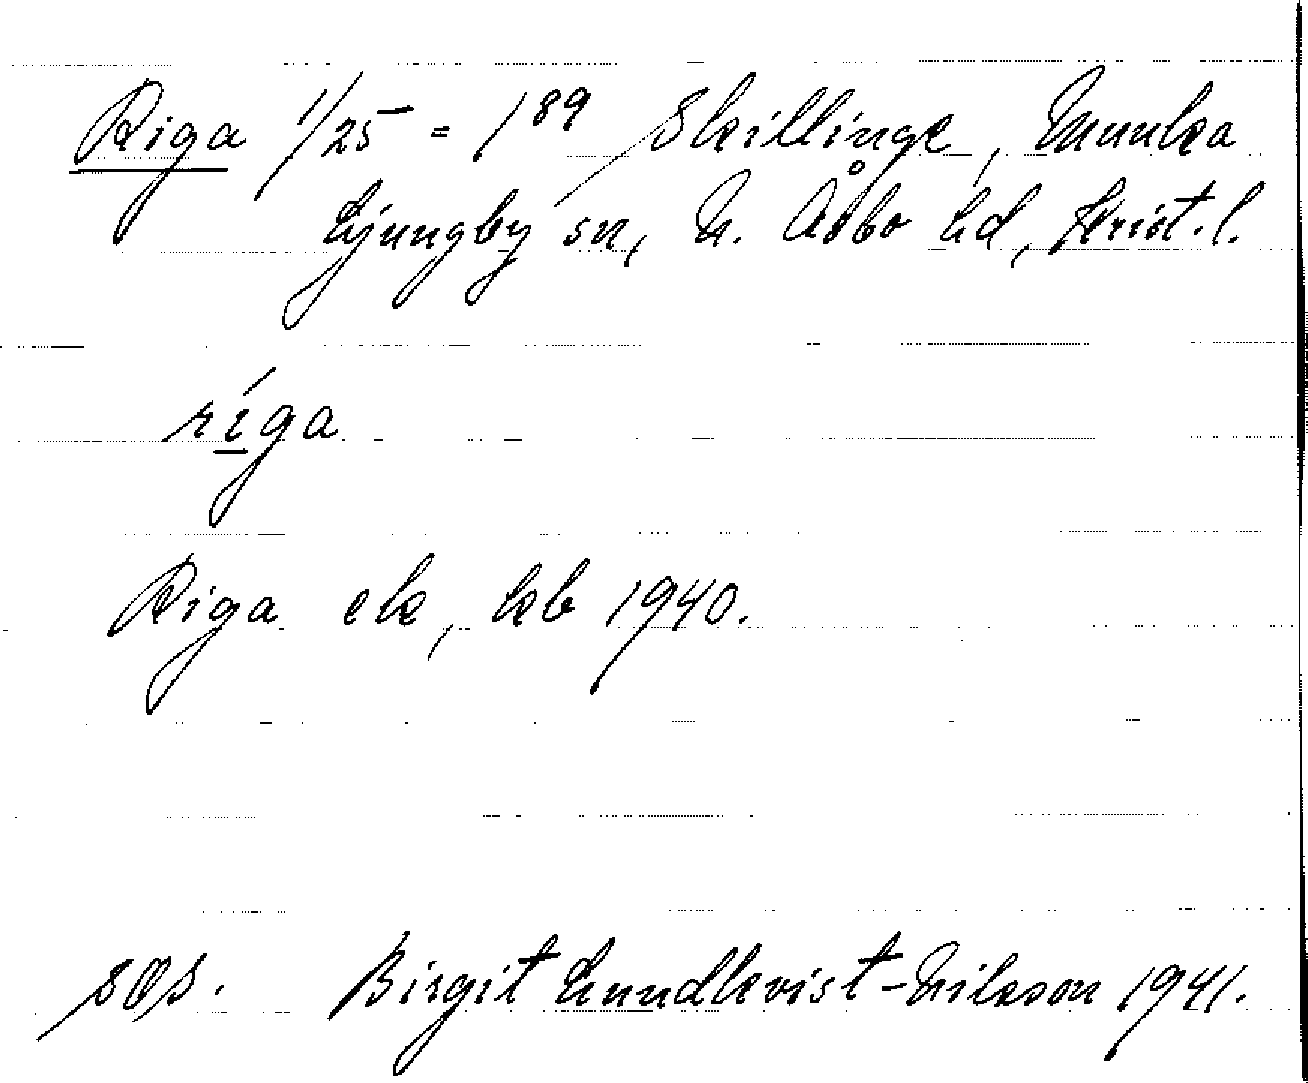 Riga 1/25 = 1⁸⁹ Skillinge, Munka
Ljungby sn, N. Åsbo hd, Krist. l.
ríga
Riga ek, kb 1940.
sås. Birgit Lundkvist-Nilsson 1941.